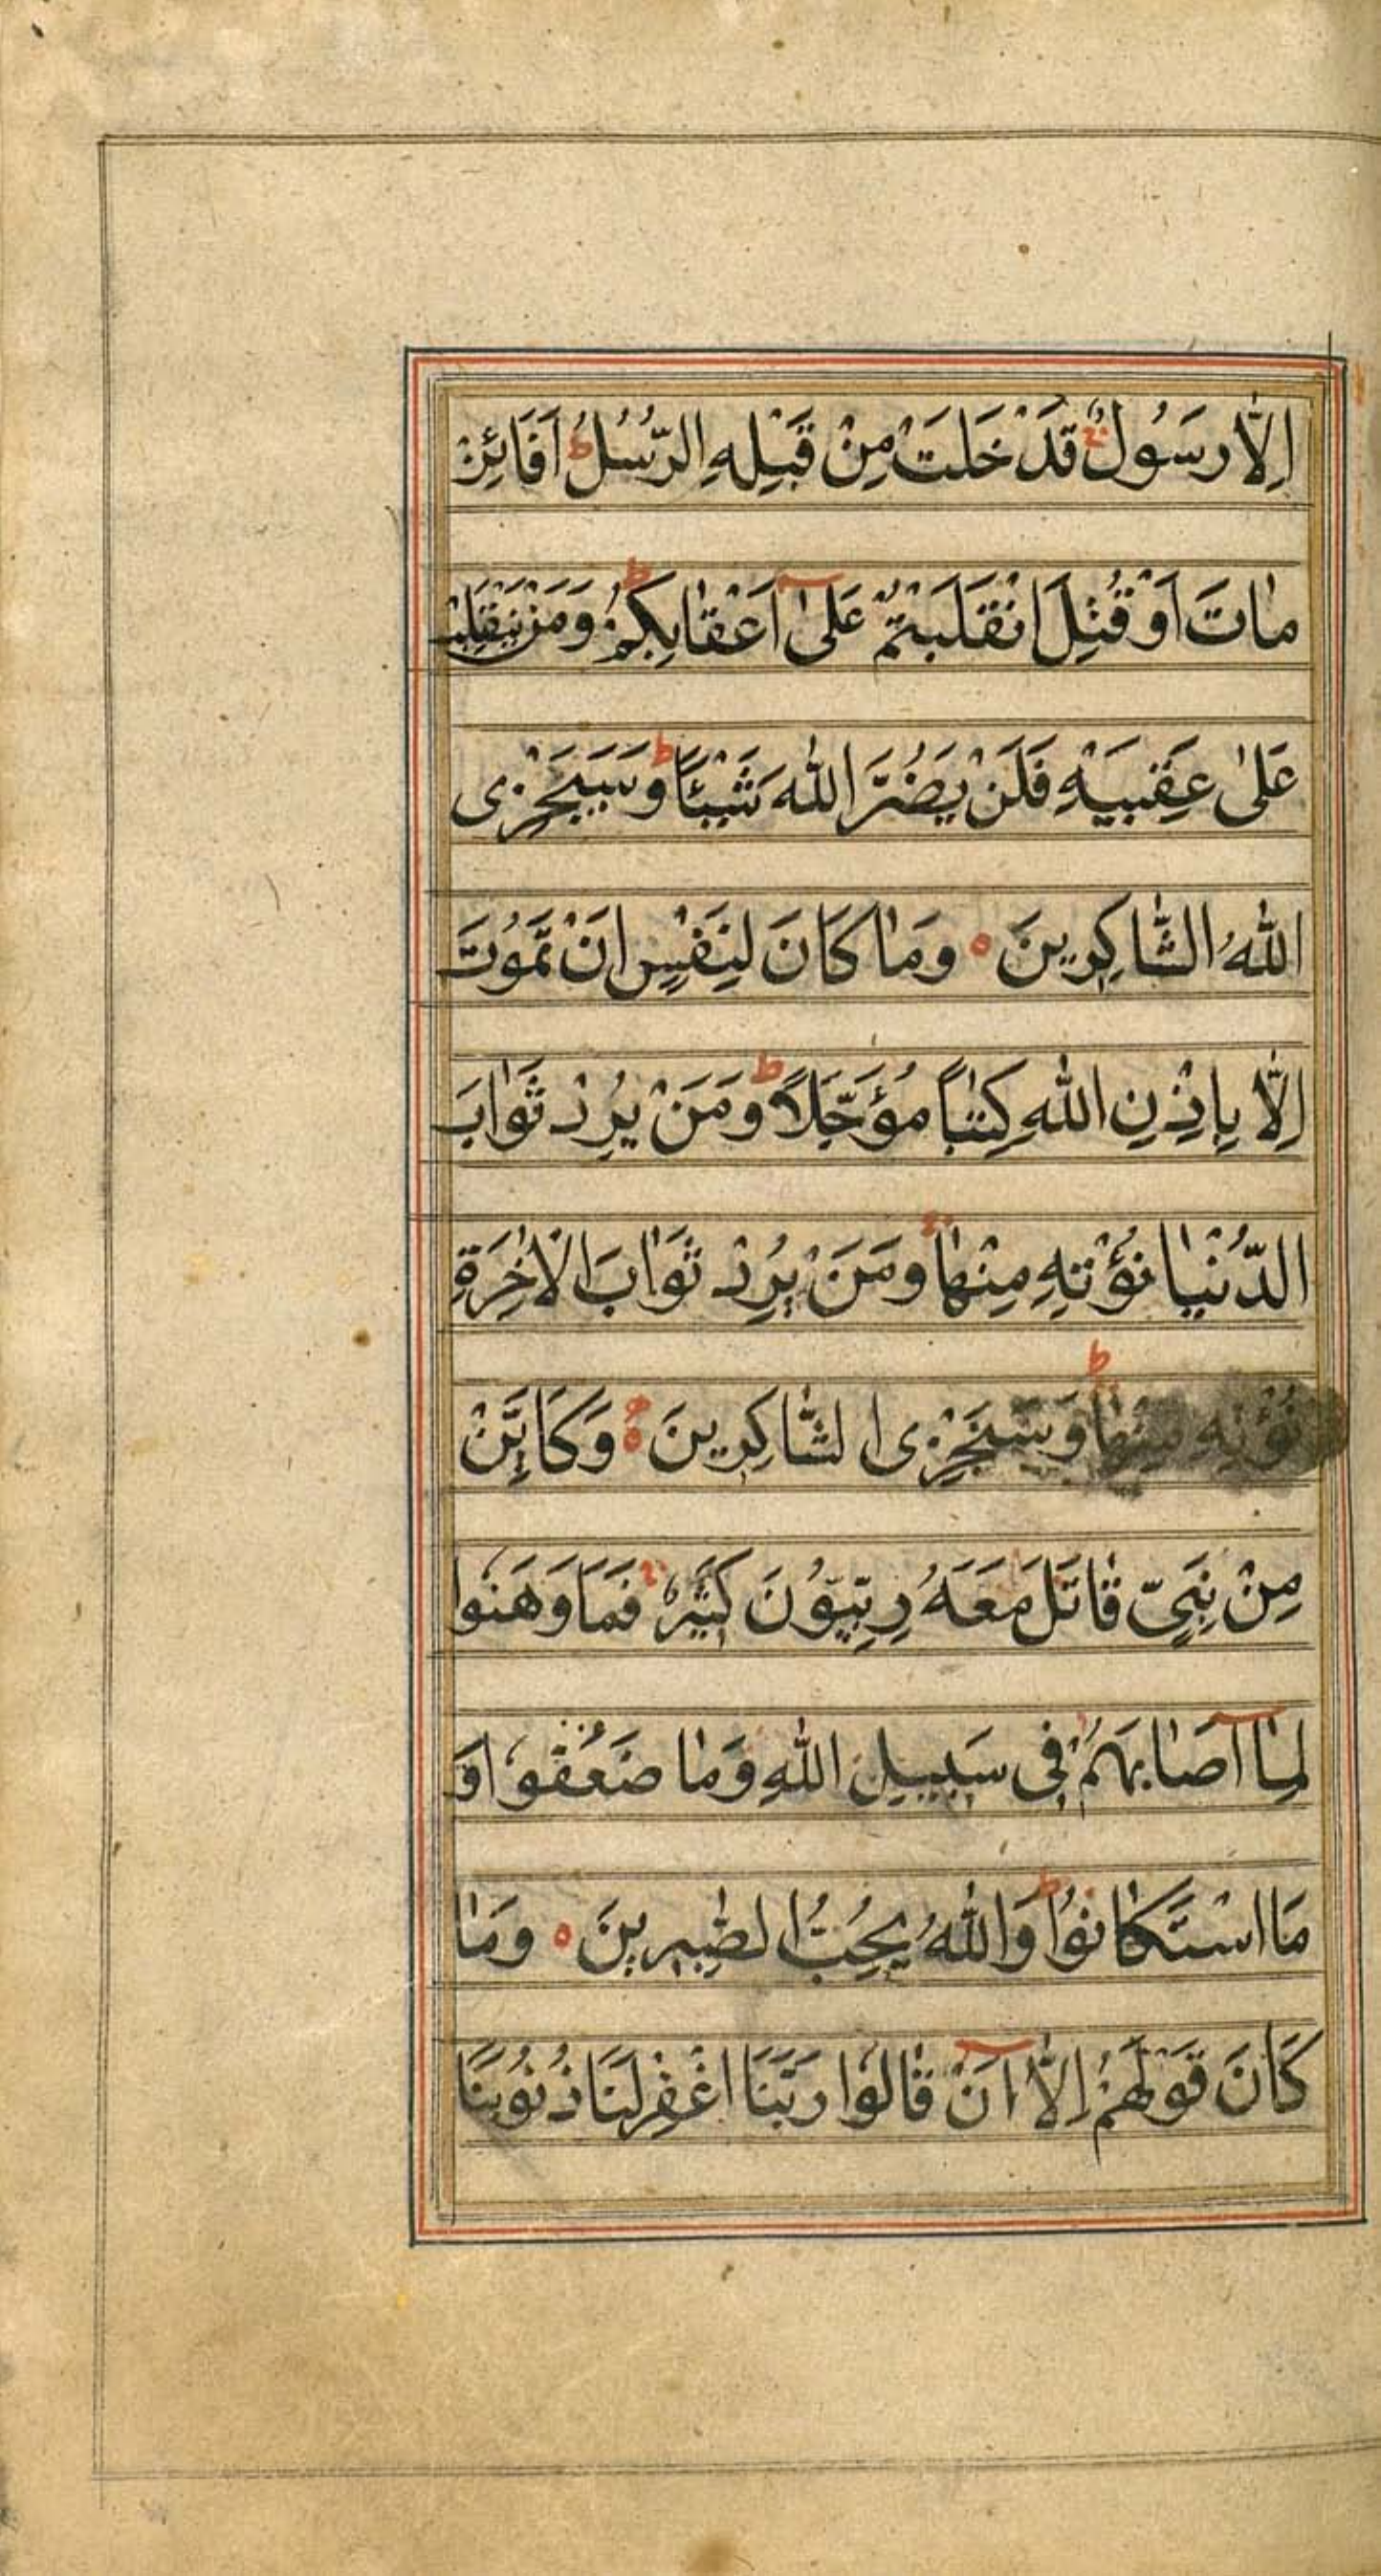 اِلَّا رَسُولٌ قَدْ خَلَتْ مِنْ قَبْلِهِ الرُّسُلُ ط اَفَائِنْ
مٰاتَ اَوْ قُتِلَ انْقَلَبْتُمْ عَلىٰٓ اَعْقٰابِكُمْ ط وَمَنْ يَنْقَلِبْ
عَلىٰ عَقِبَيْهِ فَلَنْ يَضُرَّ اللّٰهَ شَيْئًا ط وَسَيَجْزِى
اللّٰهُ الشَّاكِرِينَ ه وَمٰا كَانَ لِنَفْسٍ اَنْ تَمُوْتَ
اِلَّا بِاِذْنِ اللّٰهِ كِتٰبًا مُؤَجَّلًا ط وَمَنْ يُرِدْ ثَوٰابَ
الدُّنْيٰا نُؤْتِهِ مِنْهٰا وَمَنْ يُرِدْ ثَوٰابَ الْاٰخِرَةِ
نُؤْتِهِ مِنْهٰا ط وَسَنَجْزِى الشَّاكِرِينَ ه وَكَاَيِّنْ
مِنْ نَبِىٍّ قٰاتَلَ مَعَهُ رِبِّيُّوْنَ كَثِيْرٌ فَمَا وَهَنُوا
لِمٰٓا اَصٰابَهُمْ فِى سَبِيلِ اللّٰهِ وَمٰا ضَعُفُوا وَ
مَا اسْتَكٰانُوْا ط وَاللّٰهُ يُحِبُّ الصّٰبِرِينَ ه وَمٰا
كَانَ قَوْلَهُمْ اِلَّآ اَنْ قٰالُوا رَبَّنَا اغْفِرْ لَنَا ذُنُوْبَنَا